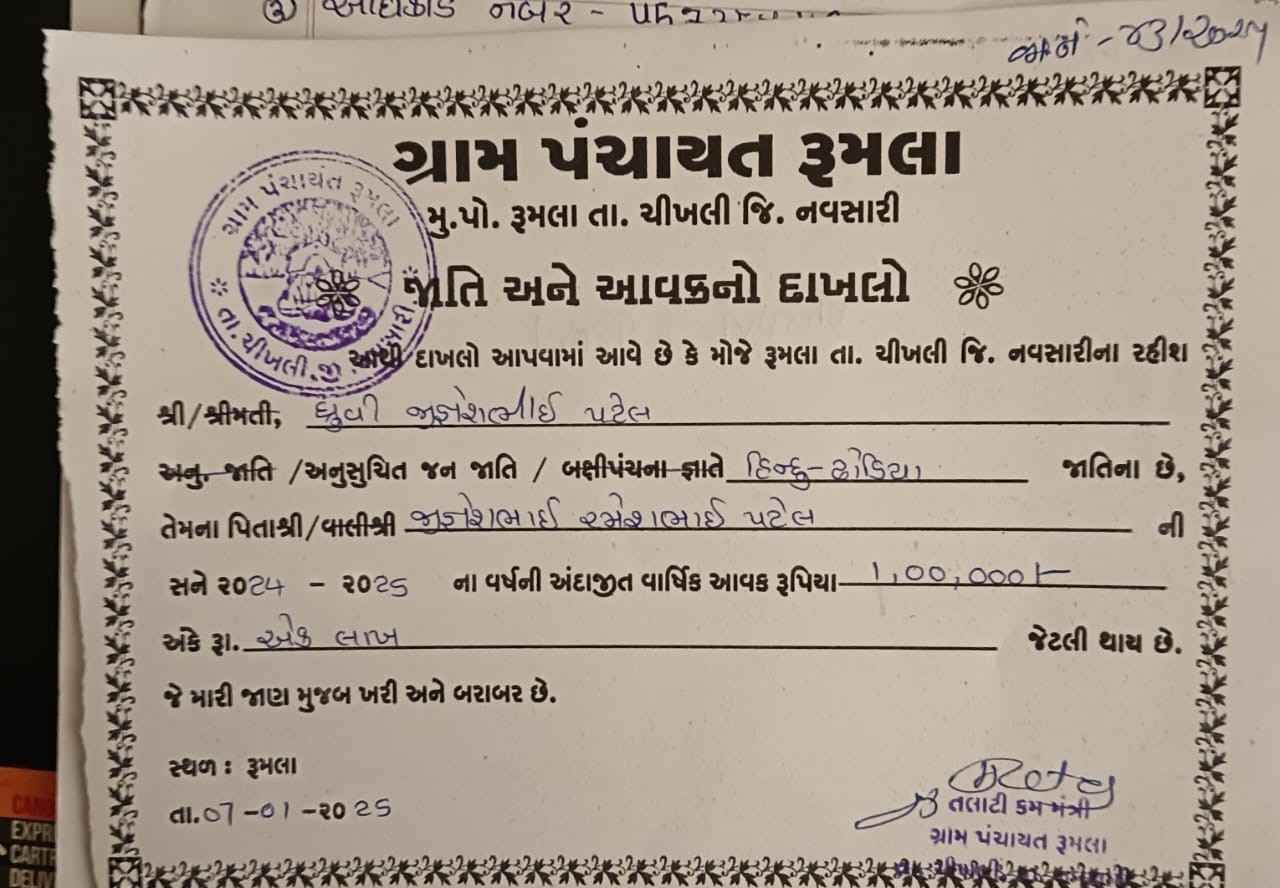 ૩) આધારકાર્ડ નંબર -
જા.નં - ૪૩/૨૦૨૫
ગ્રામ પંચાયત રૂમલા
મુ.પો. રૂમલા તા. ચીખલી જિ. નવસારી
જાતિ અને આવકનો દાખલો
ગ્રામ પંચાયત રૂમલા
તા. ચીખલી, જી. નવસારી
આથી દાખલો આપવામાં આવે છે કે મોજે રૂમલા તા. ચીખલી જિ. નવસારીના રહીશ
શ્રી/શ્રીમતી, ધ્રુવી જીજ્ઞેશભાઈ પટેલ
અનુ. જાતિ /અનુસુચિત જન જાતિ / બક્ષીપંચના જ્ઞાતે હિન્દુ-ઢોડિયા જાતિના છે,
તેમના પિતાશ્રી/વાલીશ્રી જીજ્ઞેશભાઈ રમેશભાઈ પટેલ ની
સને ૨૦24 - ૨૦25 ના વર્ષની અંદાજીત વાર્ષિક આવક રૂપિયા 1,00,000/-
અંકે રૂા. એક લાખ જેટલી થાય છે.
જે મારી જાણ મુજબ ખરી અને બરાબર છે.
સ્થળ : રૂમલા
તા. 07-01-૨૦25
તલાટી કમ મંત્રી
ગ્રામ પંચાયત રૂમલા
EXPR
CARTR
DELIV